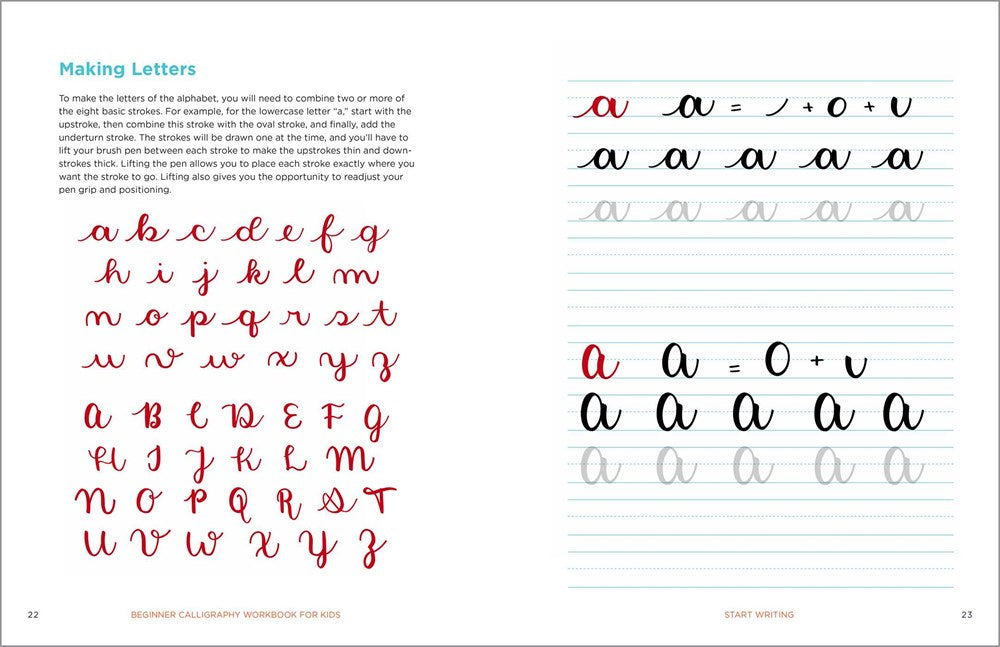 Making Letters
To make the letters of the alphabet, you will need to combine two or more of
the eight basic strokes. For example, for the lowercase letter “a,” start with the
upstroke, then combine this stroke with the oval stroke, and finally, add the
underturn stroke. The strokes will be drawn one at the time, and you’ll have to
lift your brush pen between each stroke to make the upstrokes thin and down-
strokes thick. Lifting the pen allows you to place each stroke exactly where you
want the stroke to go. Lifting also gives you the opportunity to readjust your
pen grip and positioning.
a b c d e f g
h i j k l m
n o p q r s t
u v w x y z
A B C D E F G
H I J K L M
N O P Q R S T
U V W X Y Z
22
BEGINNER CALLIGRAPHY WORKBOOK FOR KIDS
a a = / + o + u
a a a a a
a a a a a
A A = O + u
A A A A A
A A A A A
START WRITING
23